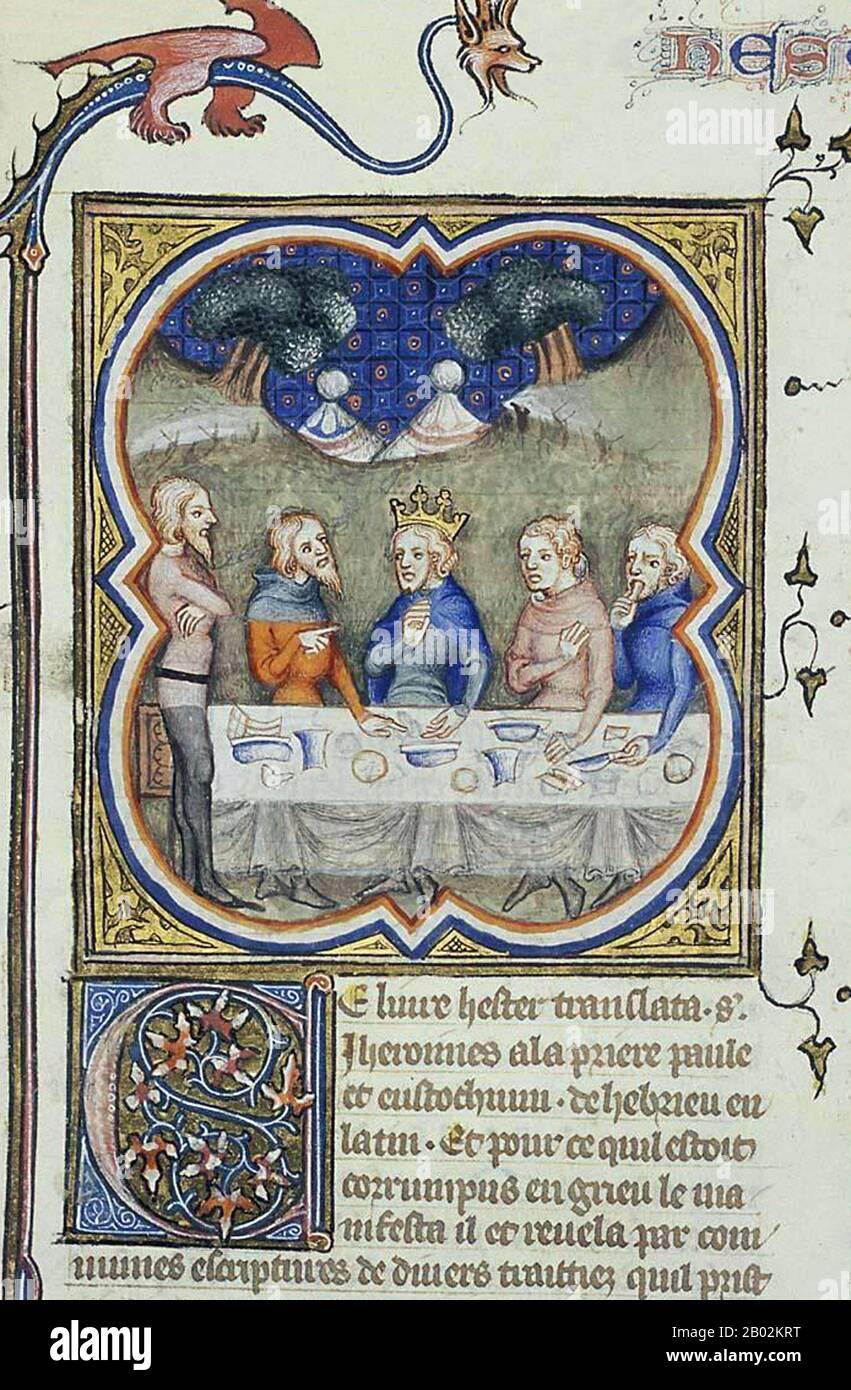 hes
Ce liure hester translata . s'.
Iheronnes a la priere paule
et eustochium . de hebrieu en
latin . Et pour ce quil estoit
corrumpus en grieu le ma
nifesta il et reuela par com
munes escriptures de diuers traittiez quil prist
alamy
Image ID: 2B02KRT
www.alamy.com